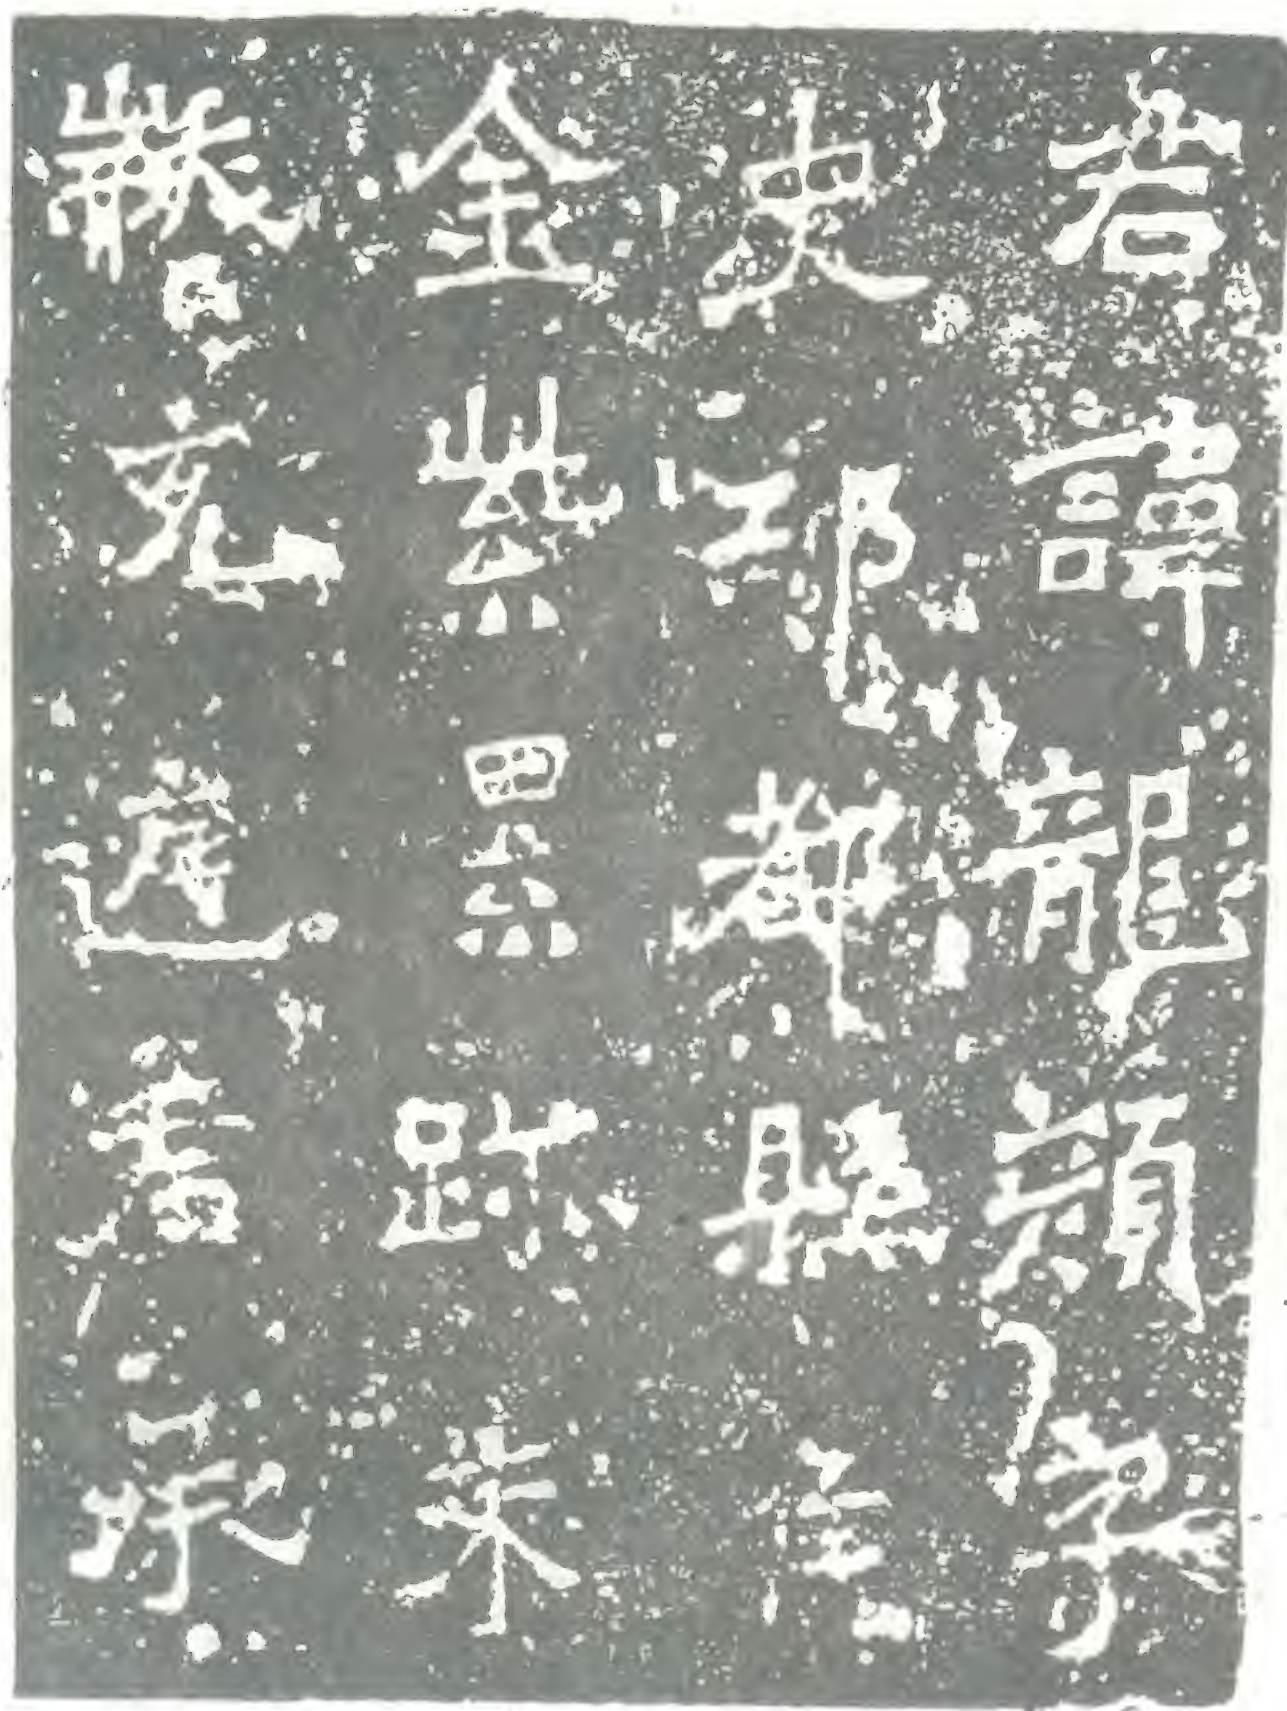 君諱龍顏字
史邛都縣侯
金紫累跡朱
黻充庭君承